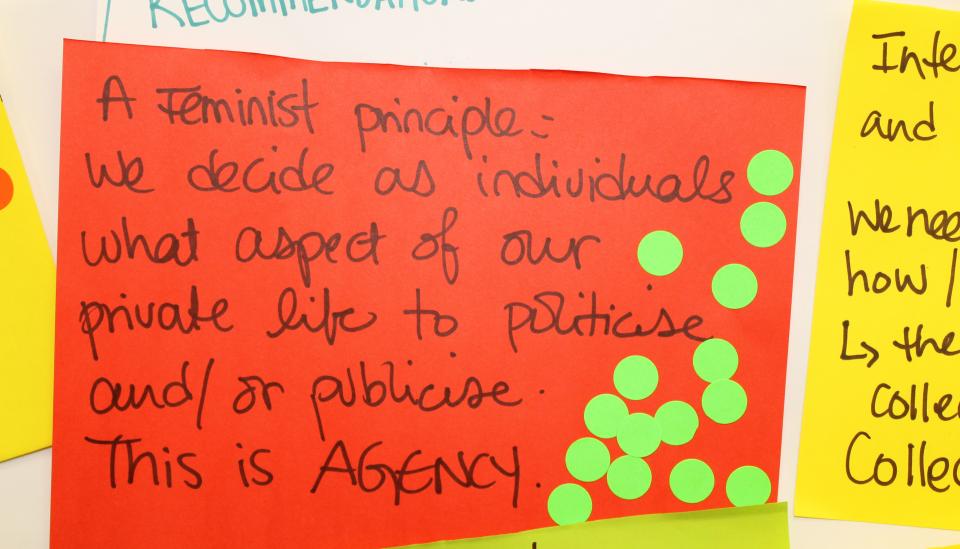 RECOMMENDATIONS
A Feminist principle:-
We decide as individuals
what aspect of our
private life to politicise
and/or publicise.
This is AGENCY.
and
how /
↳ the